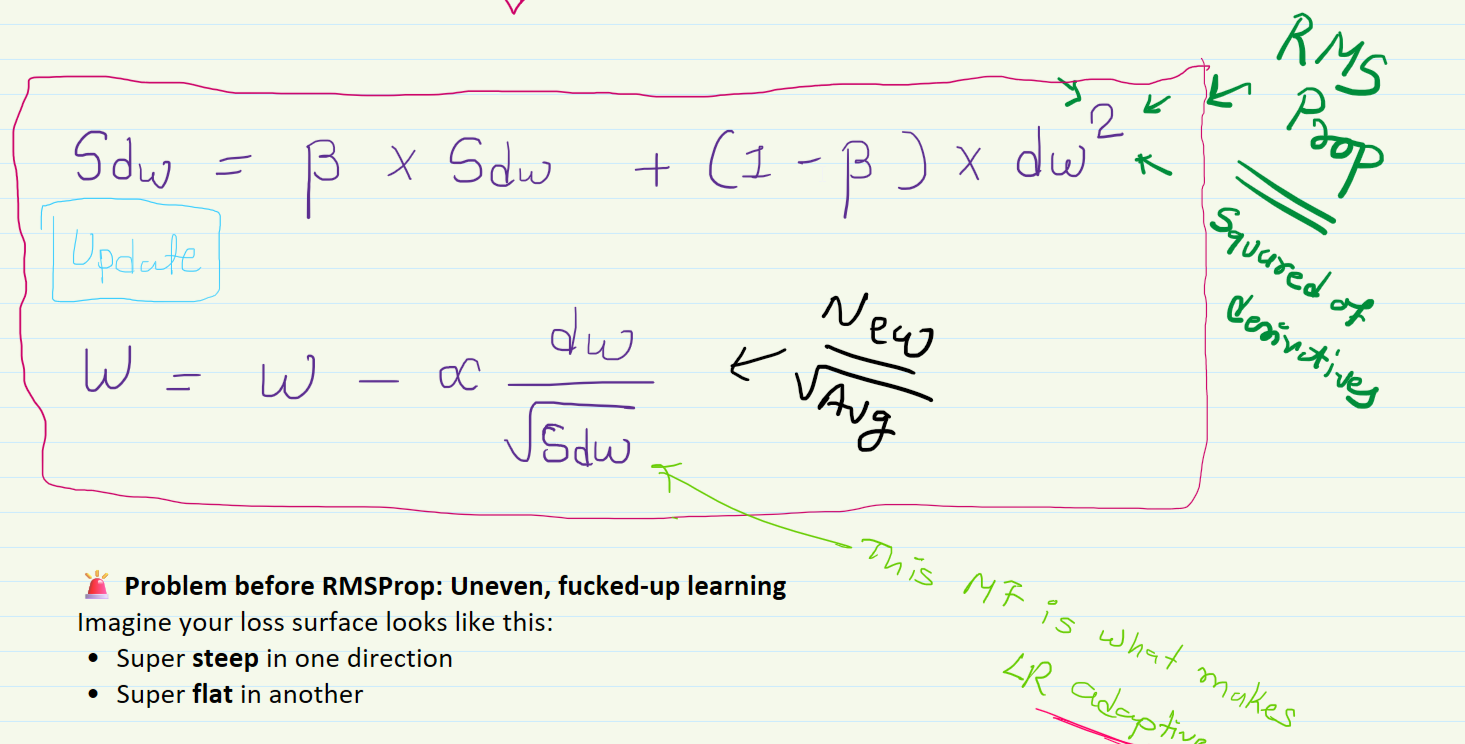 RMS
Prop
Sdw = β × Sdw + (1 - β) × dw²
Squared of
derivatives
Update
W = W - α dw / √Sdw
New
√Avg
This MF is what makes
LR adaptive
🚨 Problem before RMSProp: Uneven, fucked-up learning
Imagine your loss surface looks like this:
• Super steep in one direction
• Super flat in another